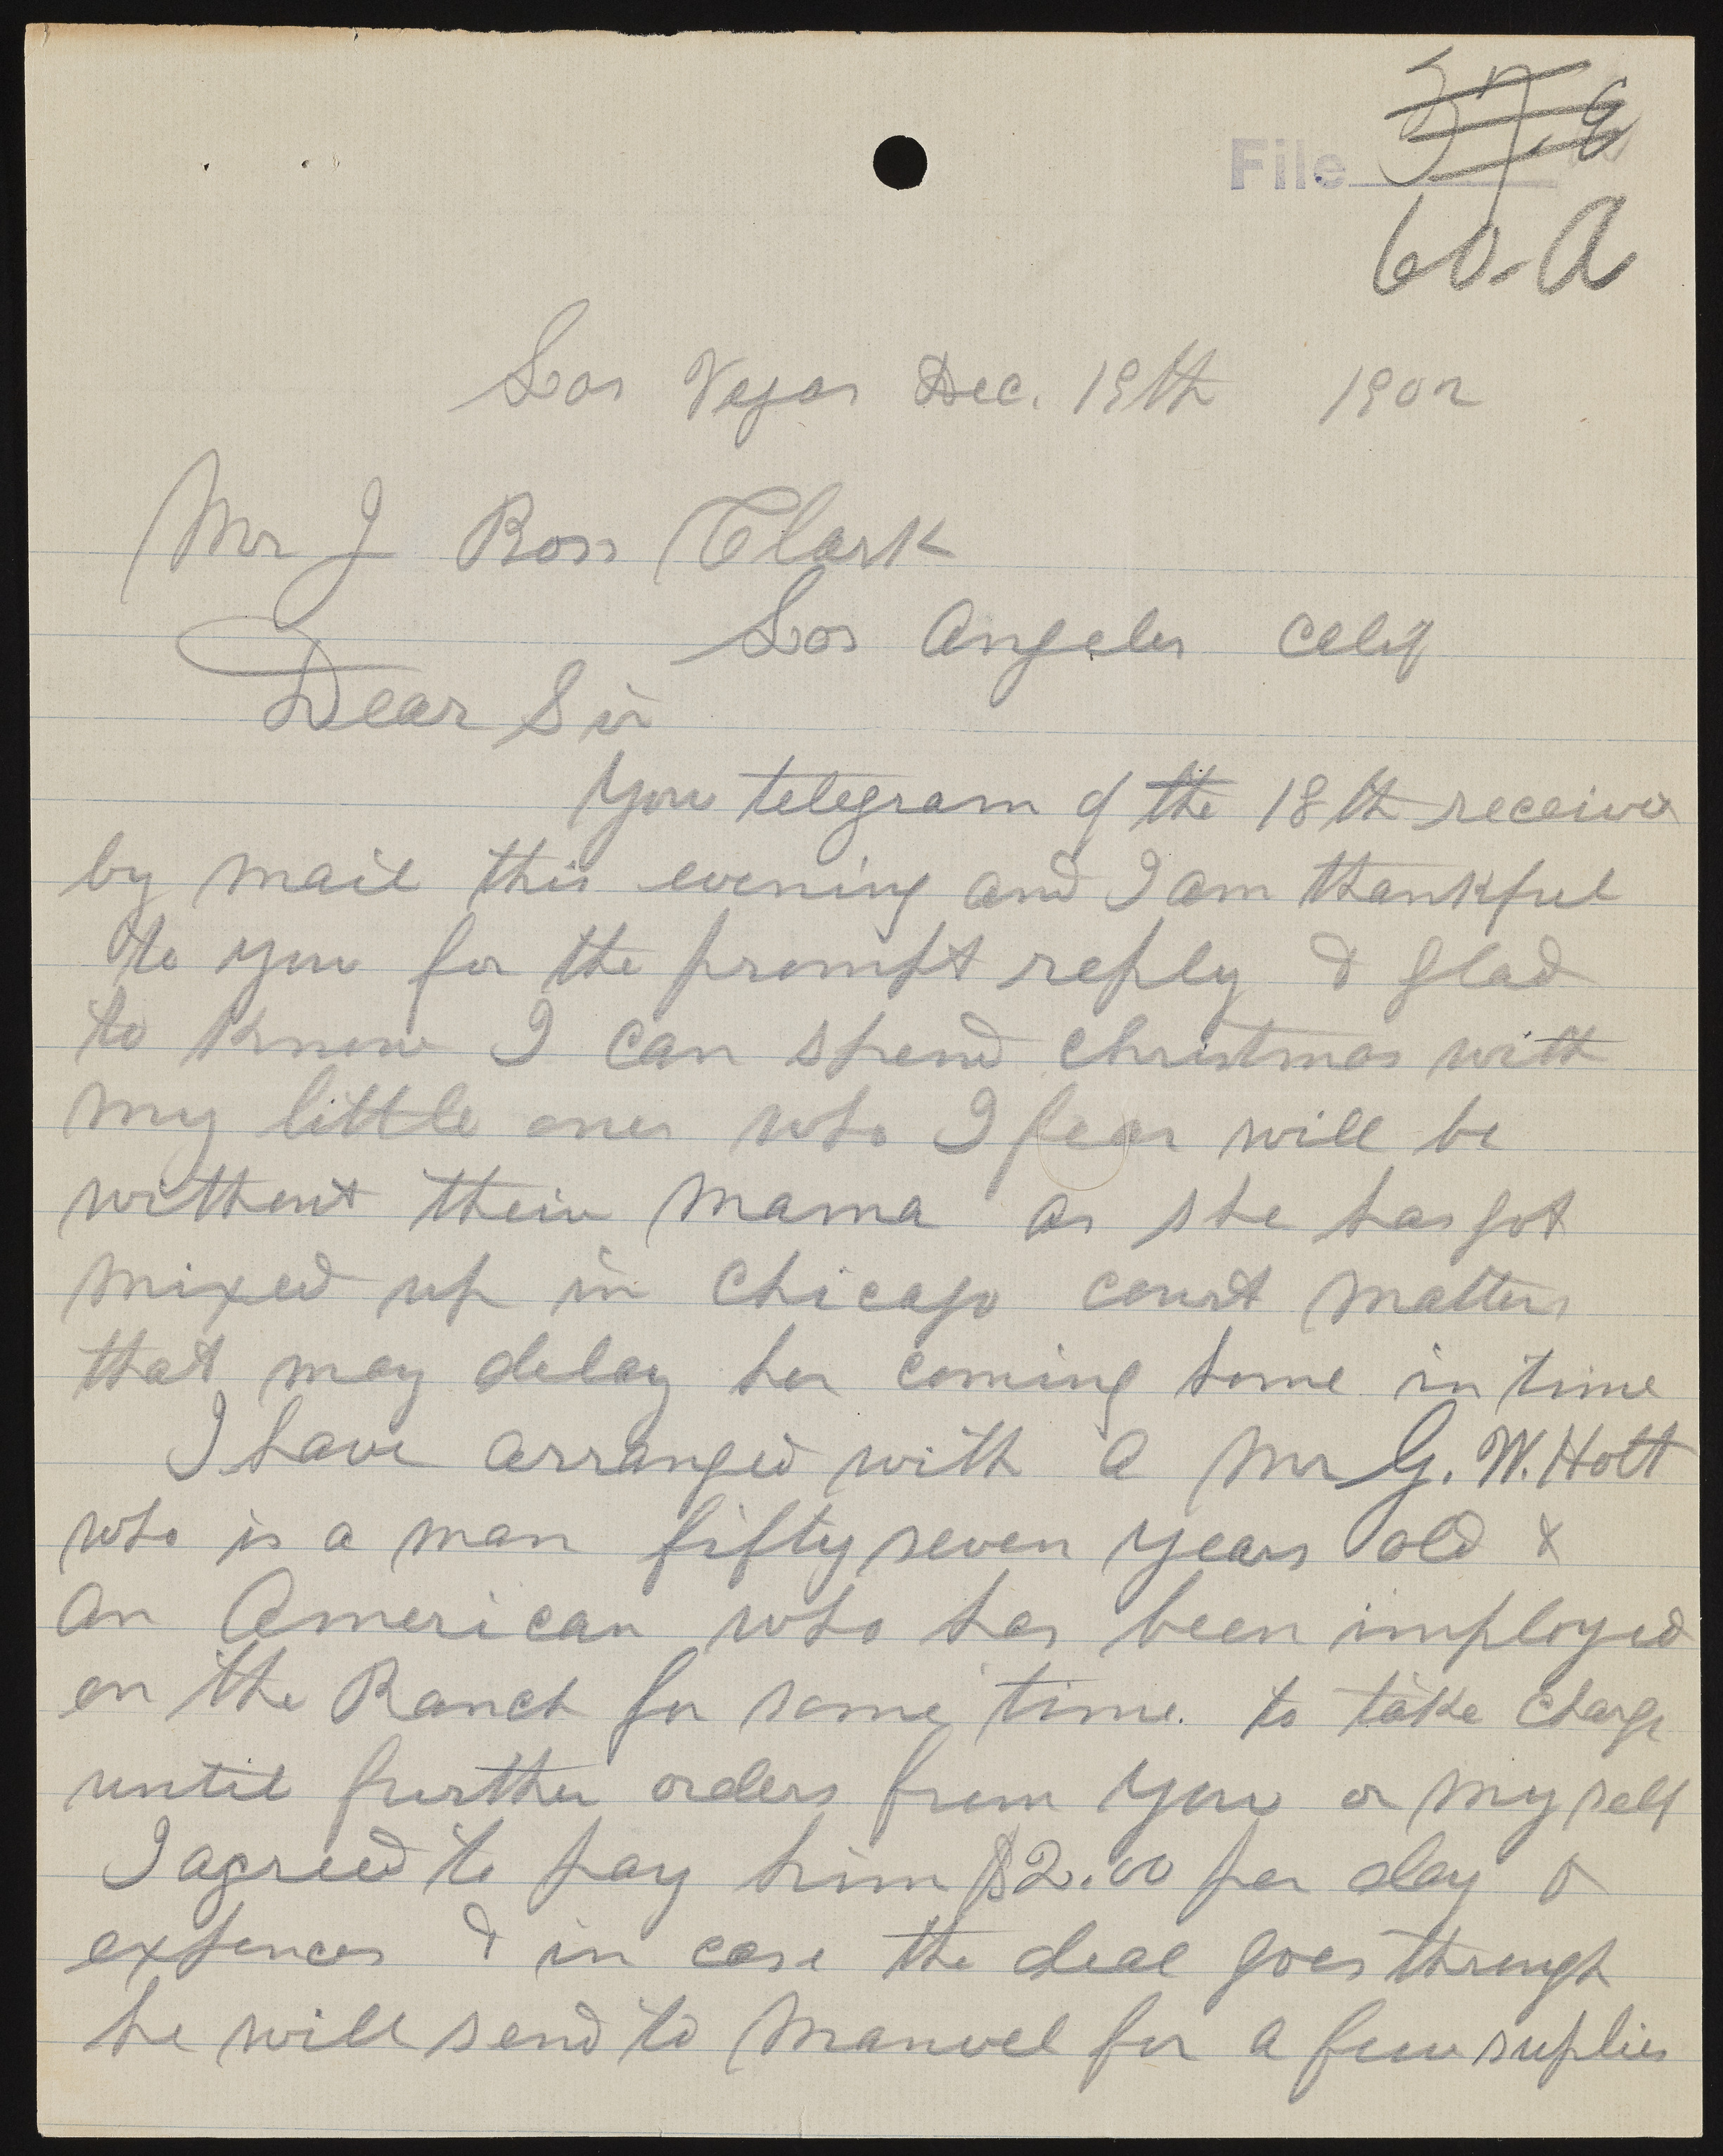 File 37-6
60-A
Los Vegas Dec. 19th 1902
Mr J Ross Clark
Los Angeles Calif
Dear Sir
Your telegram of the 18th receive
by mail this evening and I am thankful
to you for the prompt reply & glad
to know I can spend christmas with
my little ones who I fear will be
without their mama as she has got
mixed up in Chicago court matters
that may delay her coming home in time
I have arranged with a Mr G. W. Hott
who is a man fifty seven years old &
an American who has been imployed
on the Ranch for some time. to take charge
until further orders from you or my self
I agreed to pay him $2.00 per day &
expences & in case the deal goes through
he will send to Manvel for a few suplies